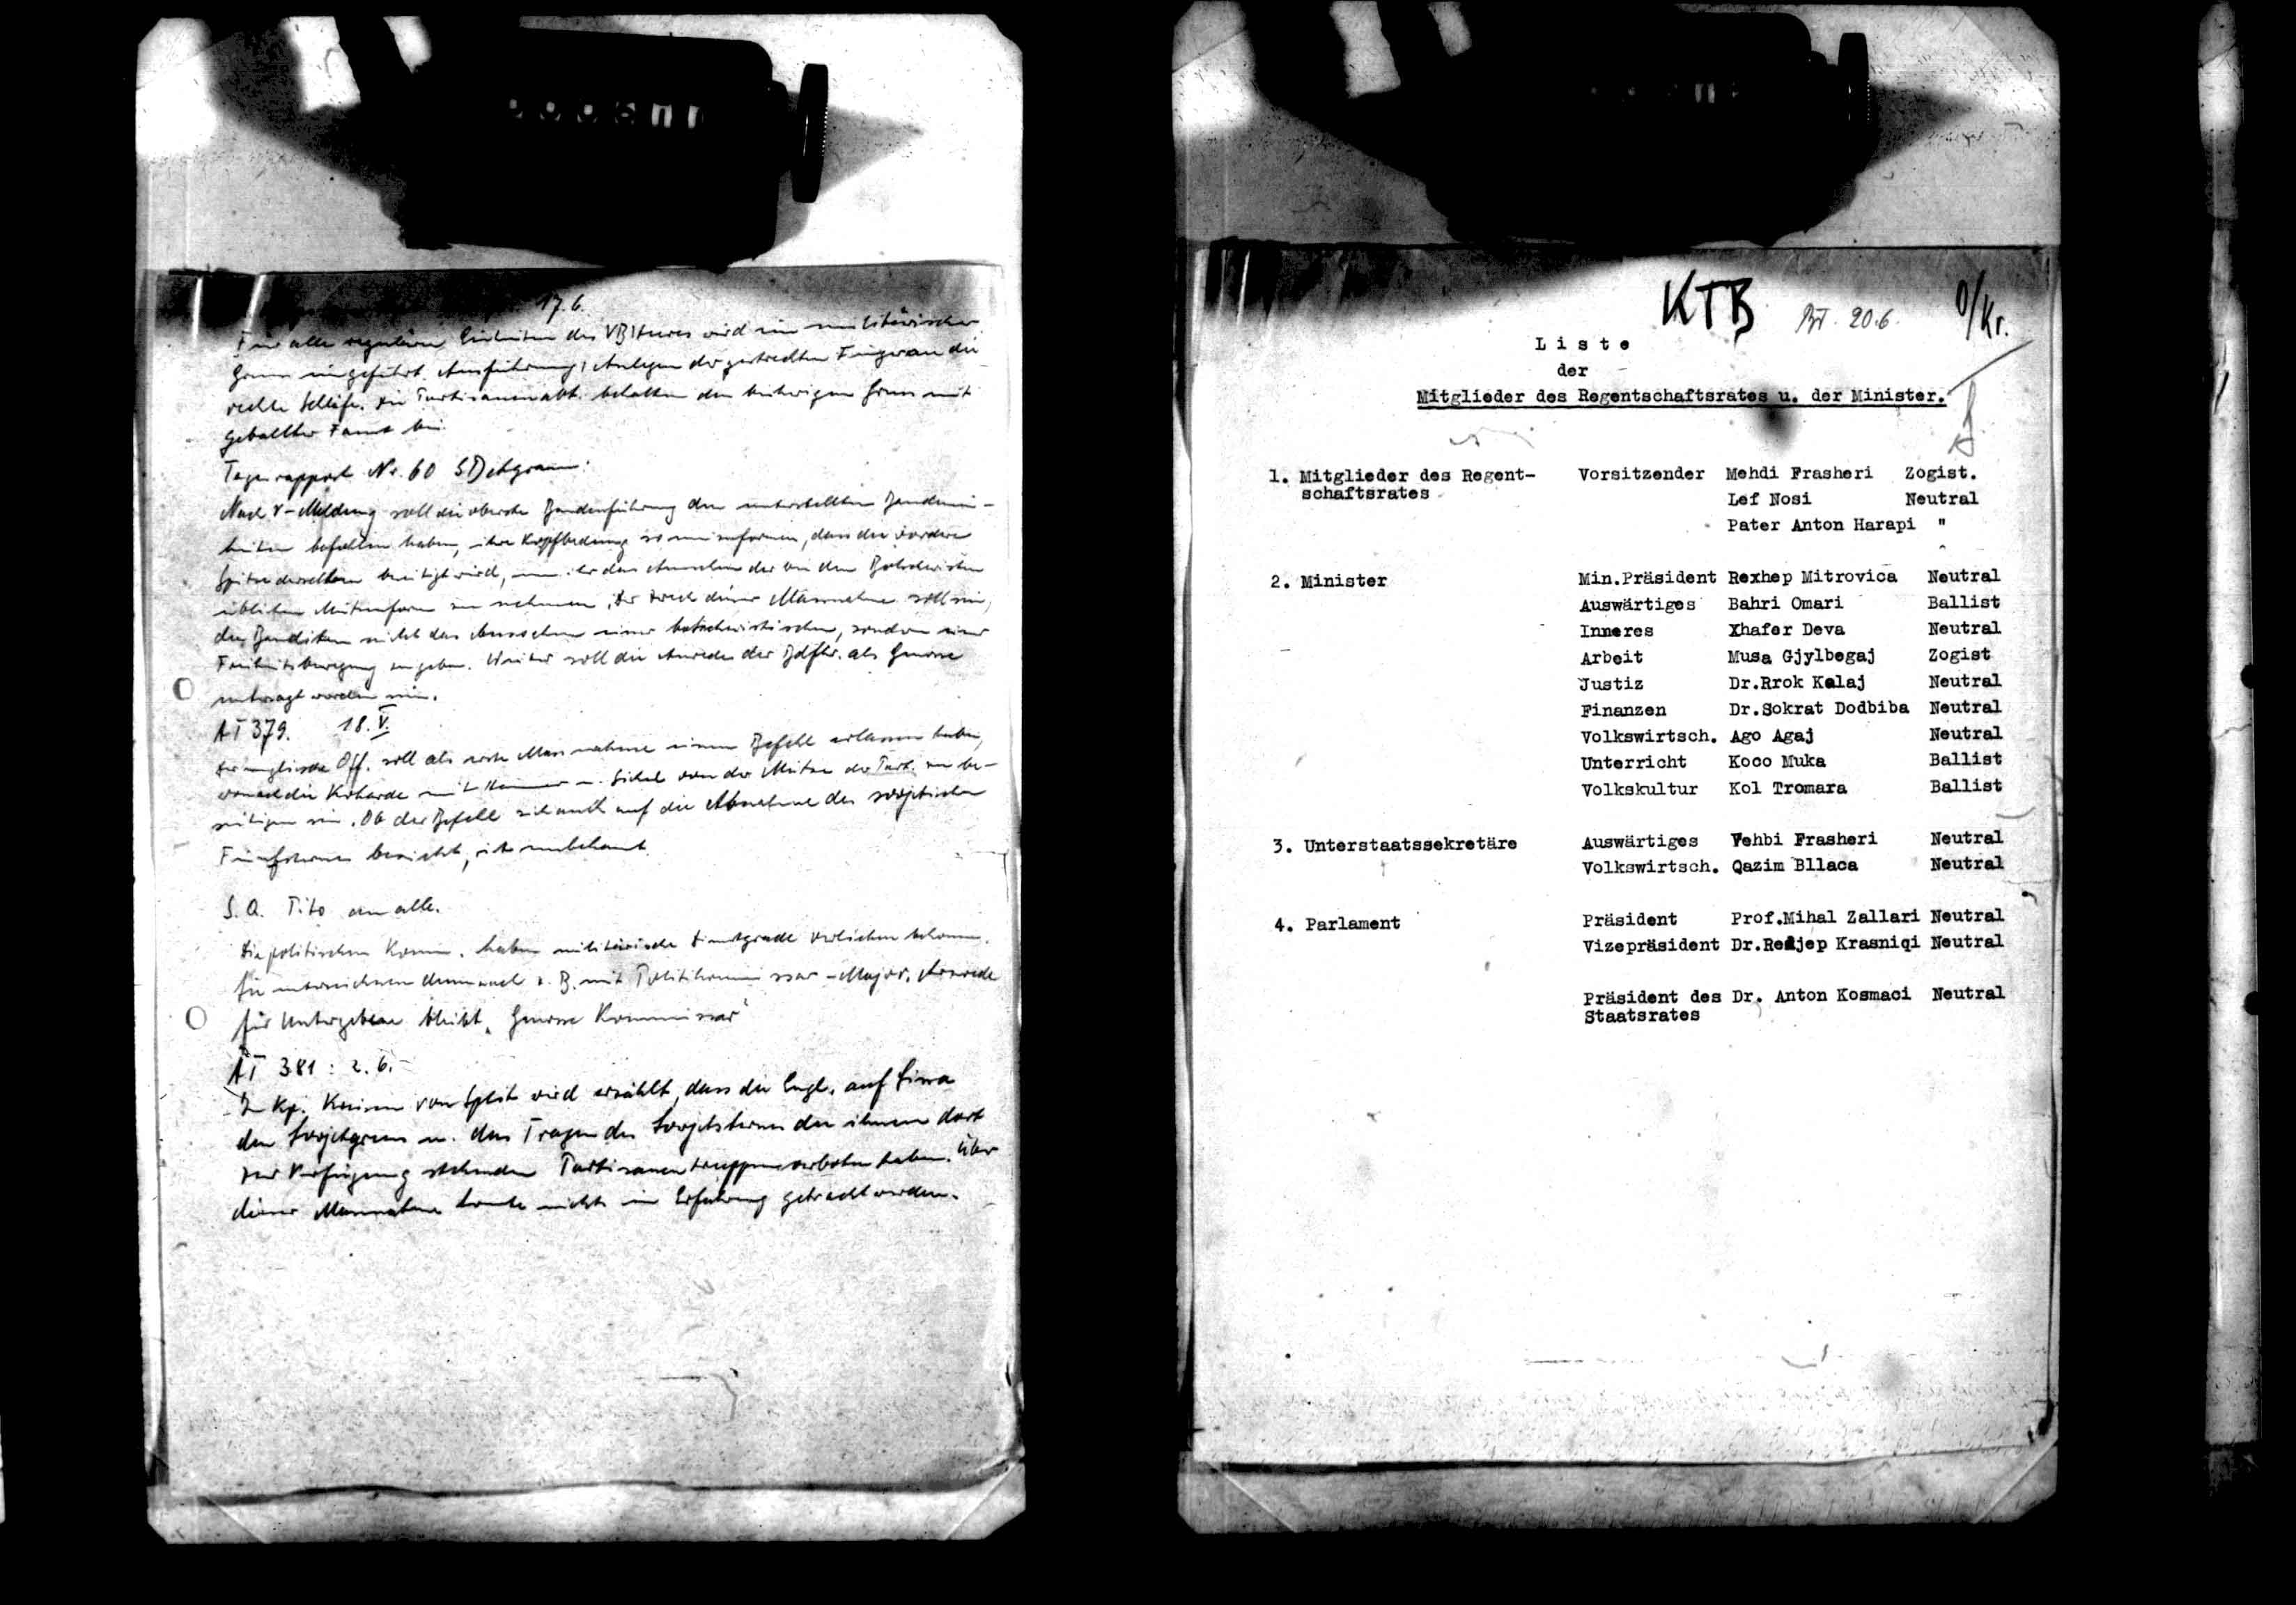 17.6.
Für alle regulären Einheiten des VB Heeres wird ein militärischer
Gruss eingeführt. Ausführung: Anlegen der gestreckten Finger an die
rechte Schläfe. Die Partisanenabt. behalten den bisherigen Gruss mit
geballter Faust bei.
Tagesrapport Nr. 60 SD
Nach V-Meldung soll die oberste Bandenführung den unterstellten Bandenein-
heiten befohlen haben, ihre Kopfbedeckung so umzuformen, dass die vordere
Spitze derselben beseitigt wird, um ihr das Aussehen der bei den Bolschewisten
üblichen Mützenform zu nehmen. Der Zweck dieser Massnahme soll sein,
den Banditen nicht das Aussehen einer bolschewistischen, sondern einer
Freiheitsbewegung zu geben. Weiter soll die Anrede der Bdfhr. als Genosse
untersagt worden sein.
AT 379. 18.V.
Der englische Off. soll als erste Massnahme einen Befehl erlassen haben,
wonach die Kokarde mit Hammer u. Sichel von der Mütze der Part. zu be-
seitigen sei. Ob der Befehl sich auch auf die Abnahme des sowjetischen
Fünfsternes bezieht, ist unbekannt.
S.A. Tito an alle.
Die politischen Komm. haben militärische Dienstgrade verliehen bekomm.
Sie unterzeichnen demnach z.B. mit Politkommissar-Major. Anrede
für Untergebene bleibt "Genosse Kommissar"
AT 381: 2.6.
In Kp. Kreisen von Split wird erzählt, dass die Engl. auf Lissa
den Sowjetgruss u. das Tragen des Sowjetsternes den ihnen dort
zur Verfügung stehenden Partisanentruppen verboten haben. Über
diese Massnahme konnte nichts in Erfahrung gebracht werden.
KTB 20.6. O/Kr.
Liste
der
Mitglieder des Regentschaftsrates u. der Minister.
1. Mitglieder des Regent- Vorsitzender Mehdi Frasheri Zogist.
schaftsrates Lef Nosi Neutral
Pater Anton Harapi "
2. Minister Min.Präsident Rexhep Mitrovica Neutral
Auswärtiges Bahri Omari Ballist
Inneres Xhafer Deva Neutral
Arbeit Musa Gjylbegaj Zogist
Justiz Dr.Rrok Kolaj Neutral
Finanzen Dr.Sokrat Dodbiba Neutral
Volkswirtsch. Ago Agaj Neutral
Unterricht Koco Muka Ballist
Volkskultur Kol Tromara Ballist
3. Unterstaatssekretäre Auswärtiges Vehbi Frasheri Neutral
Volkswirtsch. Qazim Bllaca Neutral
4. Parlament Präsident Prof.Mihal Zallari Neutral
Vizepräsident Dr.Redjep Krasniqi Neutral
Präsident des Dr. Anton Kosmaci Neutral
Staatsrates